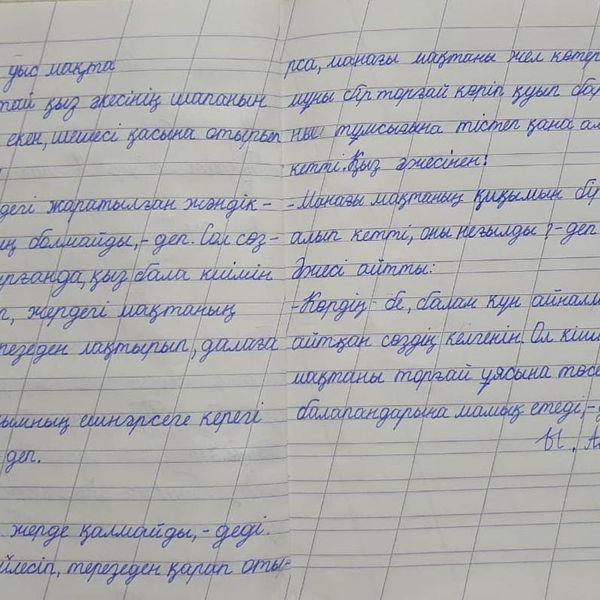 уыс мақта
тай қыз әкесінің шапанын
екен, шешесі қасына отырып
дегі жаратылған жәндік -
ің болмайды, - деп. Сол сөз -
ырғанда, қыз бала киімін
п, жердегі мақтаның
резеден лақтырып, далаға
ымның ешнәрсеге керегі
деп.
жерде қалмайды, - деді.
йлесіп, терезеден қарап оты -
рса, манағы мақтаны жел көтер
мұны бір торғай көріп қуып бар
ны тұмсығына тістеп қана ал
кетті. Қыз әжесінен:
- Манағы мақтаның қиқымын бір
алып кетті, оны неғылды? - деп
Әжесі айтты:
- Көрдің бе, балам күн айналм
айтқан сөздің келгенін. Ол кішк
мақтаны торғай ұясына төсе
балапандарына мамық етеді, -
Ы. Ал